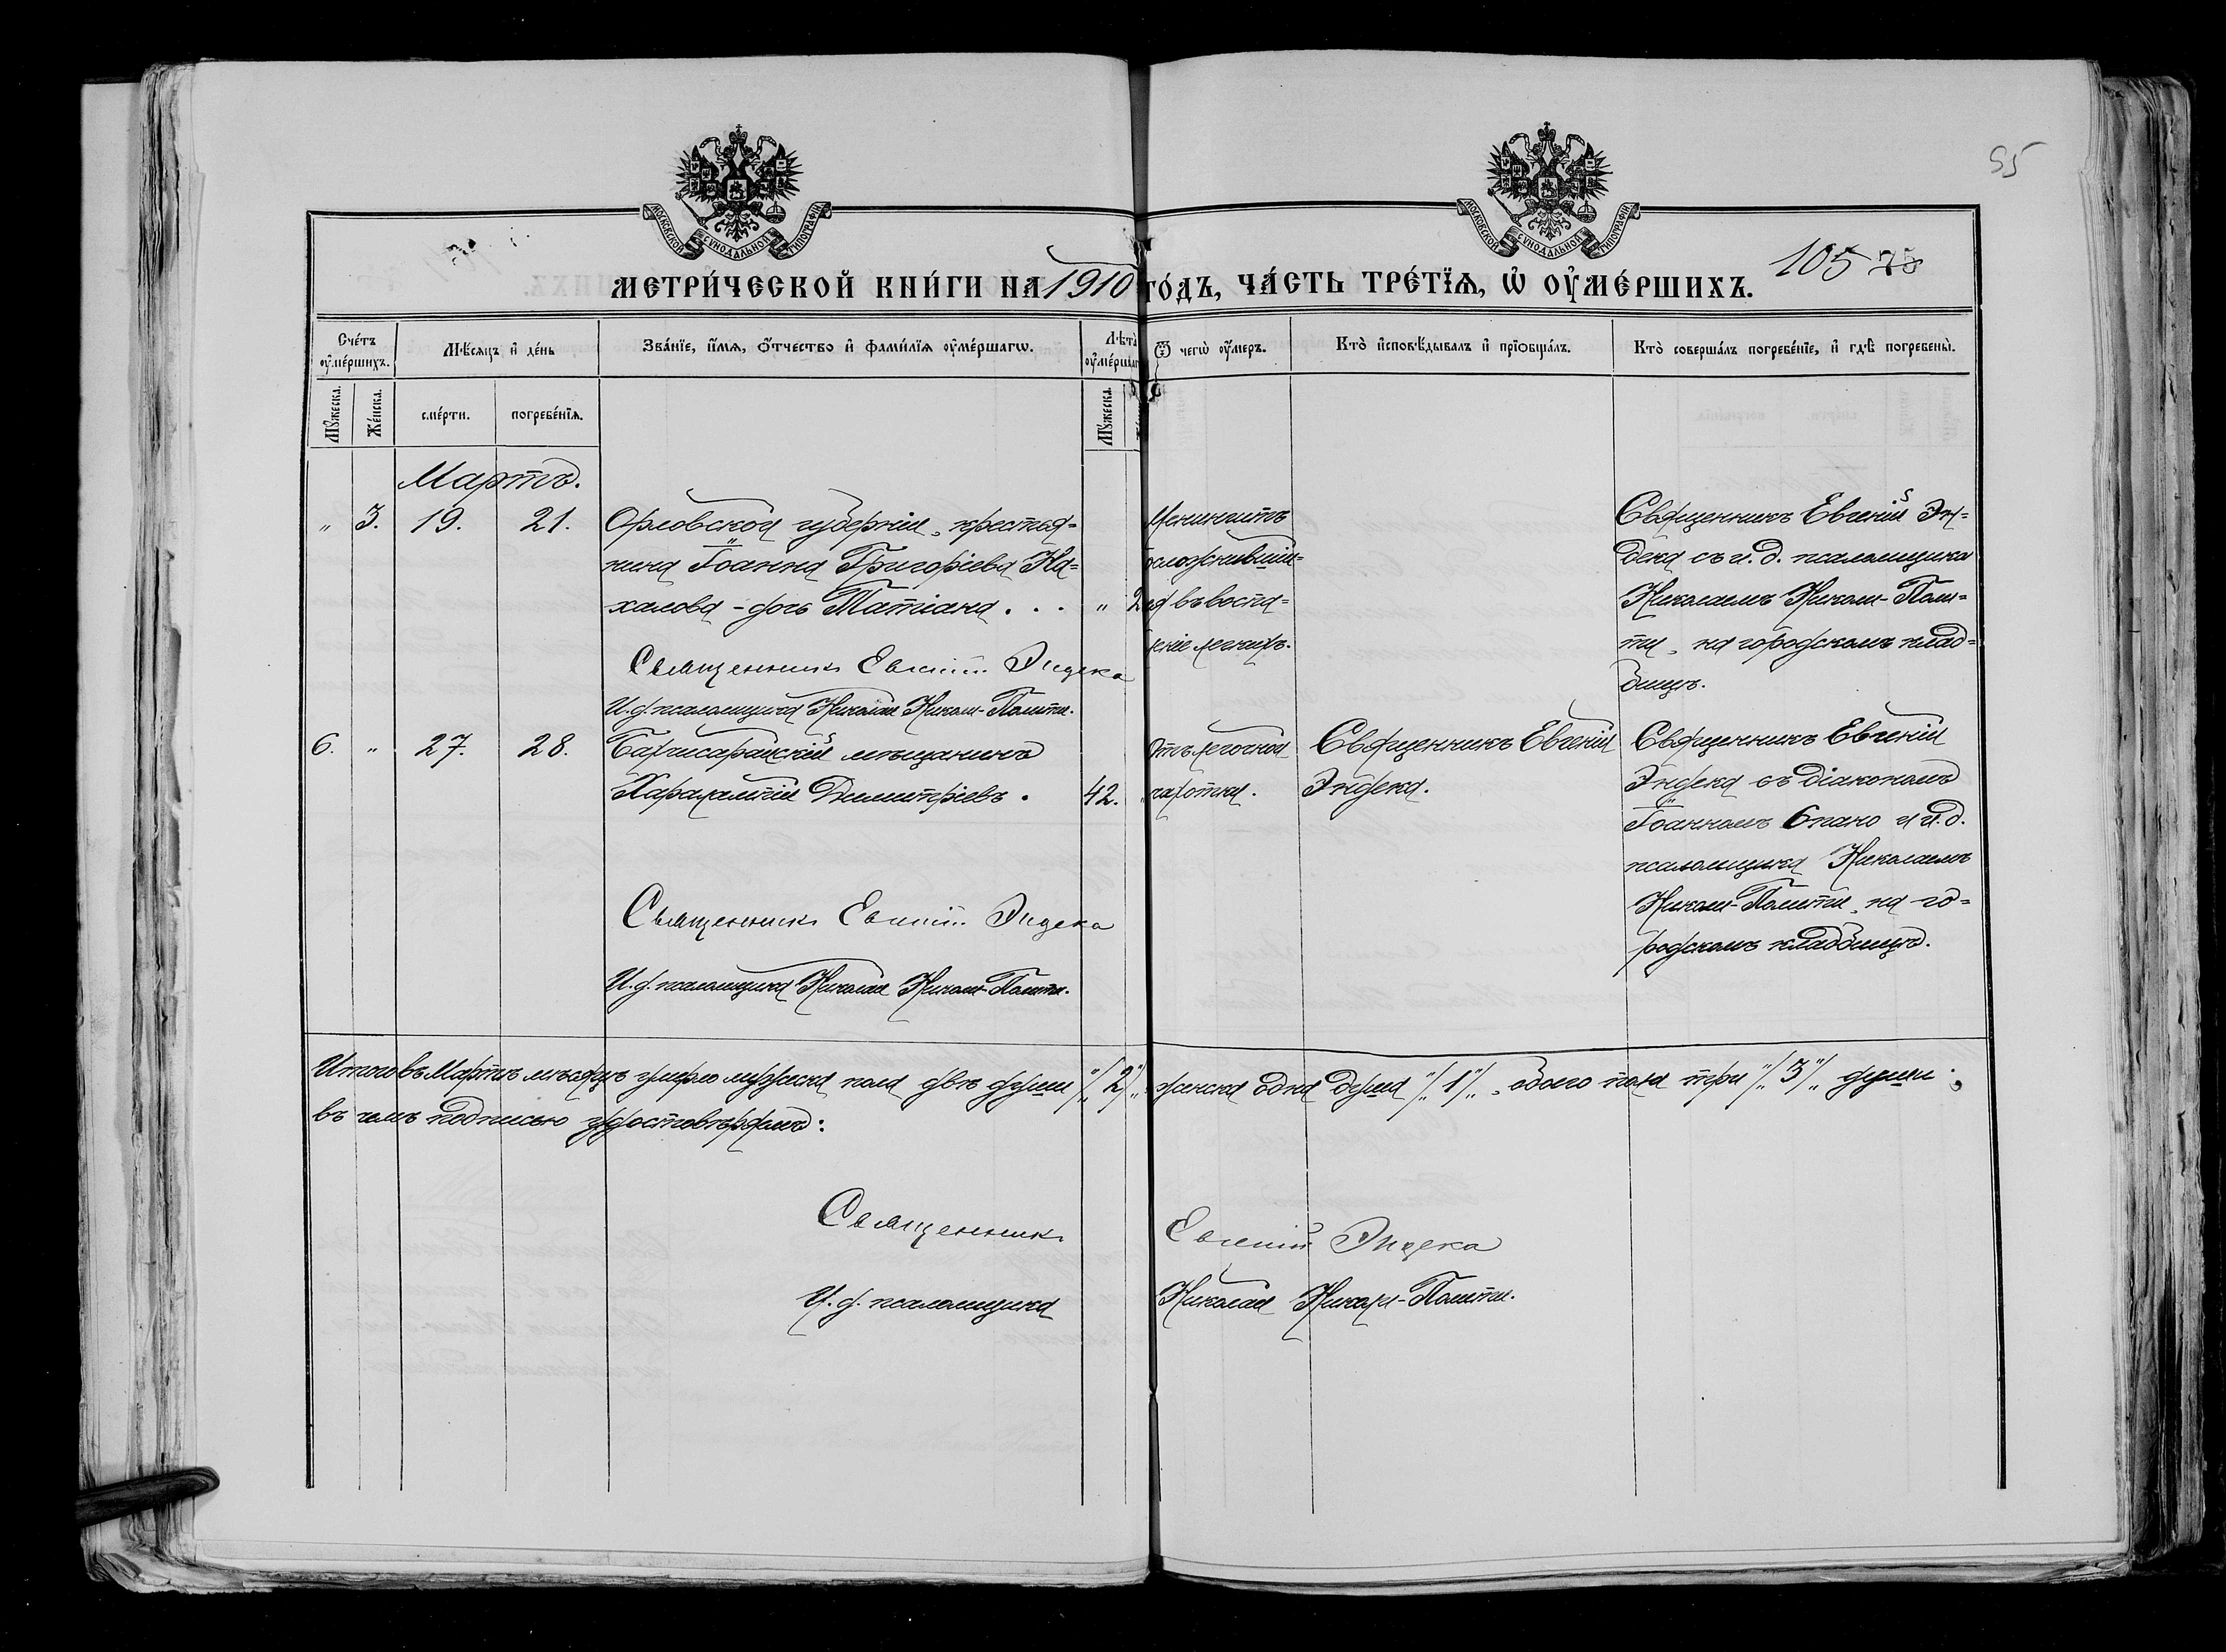 55
МОСКОВСКОЙ СУНОДАЛЬНОЙ ТИПОГРАФІИ
МОСКОВСКОЙ СУНОДАЛЬНОЙ ТИПОГРАФІИ
МЕТРИ́ЧЕСКОЙ КНИ́ГИ НА 1910 ГО́ДЪ, ЧА́СТЬ ТРЕ́ТЇѦ, Ѡ҆ ОУ҆МЕ́РШИХЪ. 105 75
Сче́тъ оу҆ме́ршихъ.
Мѣ́сѧцъ и҆ де́нь
Зва́нїе, и҆́мѧ, ѻ҆́тчество и҆ фами́лїѧ оу҆ме́ршагѡ.
Лѣ́та оу҆ме́ршаг
Ѿ чегѡ̀ оу҆́меръ.
Кто̀ и҆сповѣ́дывалъ и҆ прїѡбща́лъ.
Кто̀ соверша́лъ погребе́нїе, и҆ гдѣ̀ погребены̀.
Мꙋ́жеска. Же́нска. сме́рти. погребе́нїѧ. Мꙋ́жеска.
Мартъ.
„ 3. 19. 21. Орловской губерніи, крестья=
нина Іоанна Григоріева На=
халова - дочь Татіана . . . „ 2
Священникъ Евгеній Эндека
И. д. псаломщика Николай Николи-Полити.
Менингитъ
ослоджнившій=
ся въ воспа=
леніе легкихъ.
Священникъ Евгеній Эн=
дека съ и. д. псаломщика
Николаемъ Николи-Поли=
ти, на городскомъ клад=
бищѣ.
6. „ 27. 28. Бахчисарайскій мѣщанинъ
Харалампій Димитріевъ . 42. „
Священникъ Евгеній Эндека
И. д. псаломщика Николай Николи-Полити.
Отъ легочной
чахотки.
Священникъ Евгеній
Эндека.
Священникъ Евгеній
Эндека съ діакономъ
Іоанномъ Спано и и. д.
псаломщика Николаемъ
Николи-Полити, на го=
родскомъ кладбищѣ.
Итого въ Мартѣ мѣсяцѣ умерло мужеска пола двѣ души „/„2„/„ женска одна душа „/„1„/„, обоего пола три „/„3„/„ души;
въ чемъ подписью удостовѣряемъ:
Священникъ Евгеній Эндека
И. д. псаломщика Николай Николи-Полити.